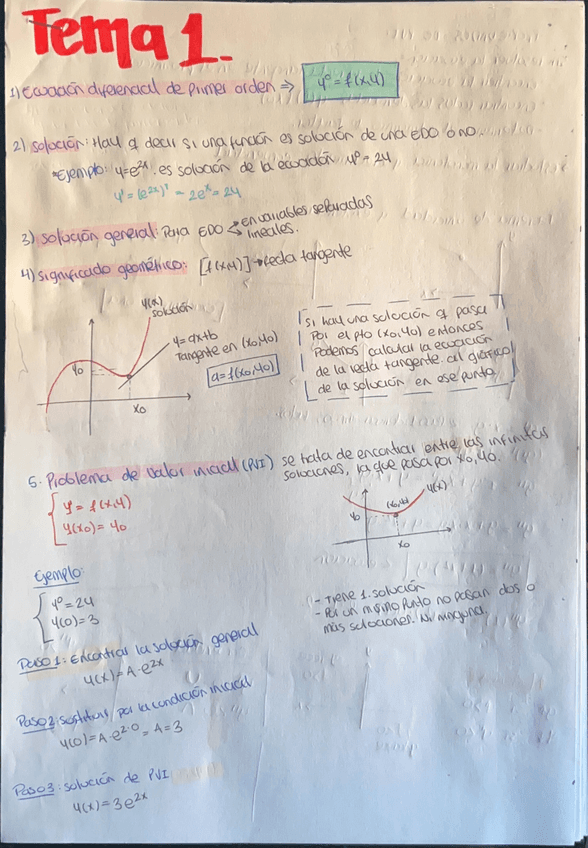 Tema 1.
1) Ecuación diferencial de primer orden ⇒ y' = f(x,y)
2) Solución: Hay q decir si una función es solución de una EDO o no.
*Ejemplo: y=e^2x. es solución de la ecuación y' = 2y
y' = (e^2x)' = 2e^x = 2y
3) Solución general: Para EDO < en variables separadas
lineales.
4) Significado geométrico: [f(x,y)] → Recta tangente
y(x)
solución
y = ax+b
Tangente en (x0,y0)
a = f(x0,y0)
y0
x0
Si hay una solución q pasa
por el pto (x0,y0) entonces
podemos calcular la ecuación
de la recta tangente al gráfico
de la solución en ese punto.
5. Problema de valor inicial (PVI) se trata de encontrar entre las infinitas
soluciones, la que pasa por x0, y0.
y' = f(x,y)
y(x0) = y0
y(x)
(x0,y0)
y0
x0
Ejemplo:
y' = 2y
y(0) = 3
- Tiene 1. solución
- Por un mismo punto no pasan dos o
más soluciones. Ni ninguna.
Paso 1: Encontrar la solución general
y(x) = A·e^2x
Paso 2: Sustituir por la condición inicial
y(0) = A·e^2·0 = A = 3
Paso 3: solución de PVI
y(x) = 3e^2x